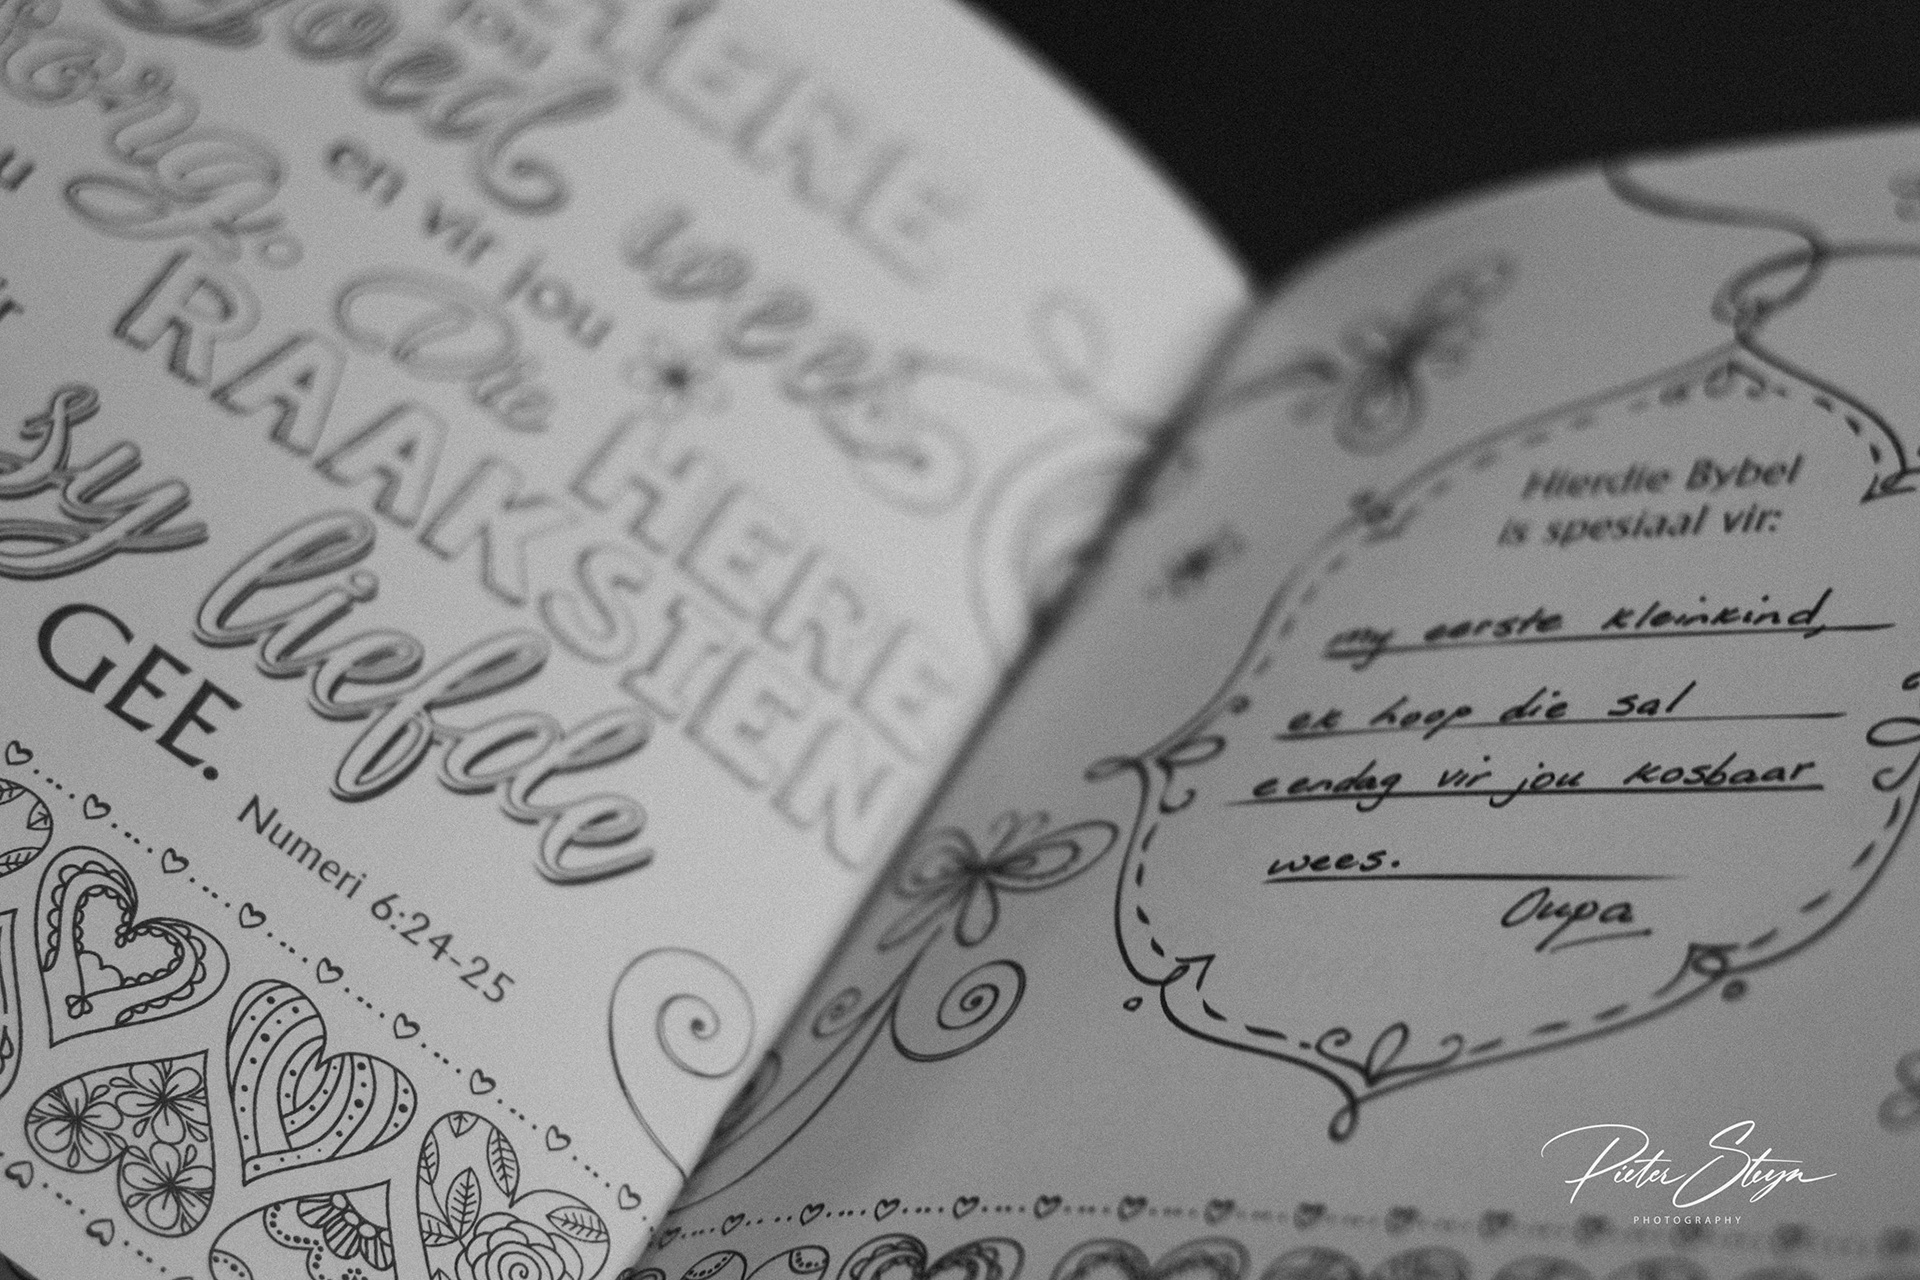 HERE
jou
Goed
wees
en vir jou
Die HERE
RAAKSIEN
sy liefde
GEE.
Numeri 6:24-25
Hierdie Bybel
is spesiaal vir:
my eerste kleinkind,
ek hoop die sal
eendag vir jou kosbaar
wees.
Oupa
Pieter Steyn
PHOTOGRAPHY